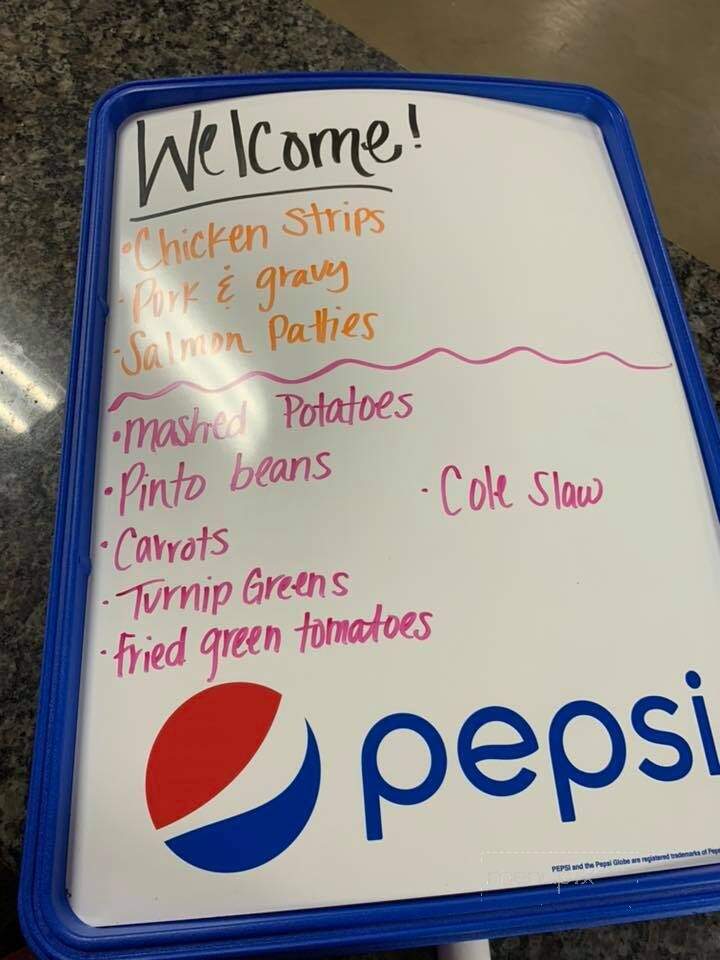 Welcome!
•Chicken Strips
•Pork & gravy
•Salmon Patties
•mashed Potatoes
•Pinto beans
•Cole Slaw
•Carrots
•Turnip Greens
•fried green tomatoes
pepsi
PEPSI and the Pepsi Globe are registered trademarks of Peps